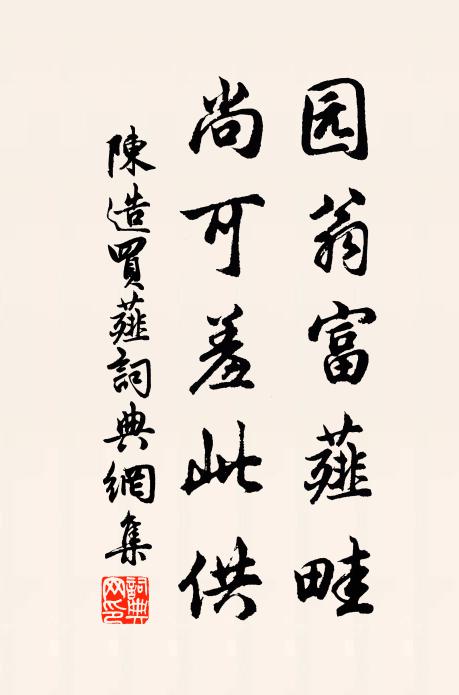 园翁富薤畦
尚可羞此供
陳造買薤詞典網集
詞典网印